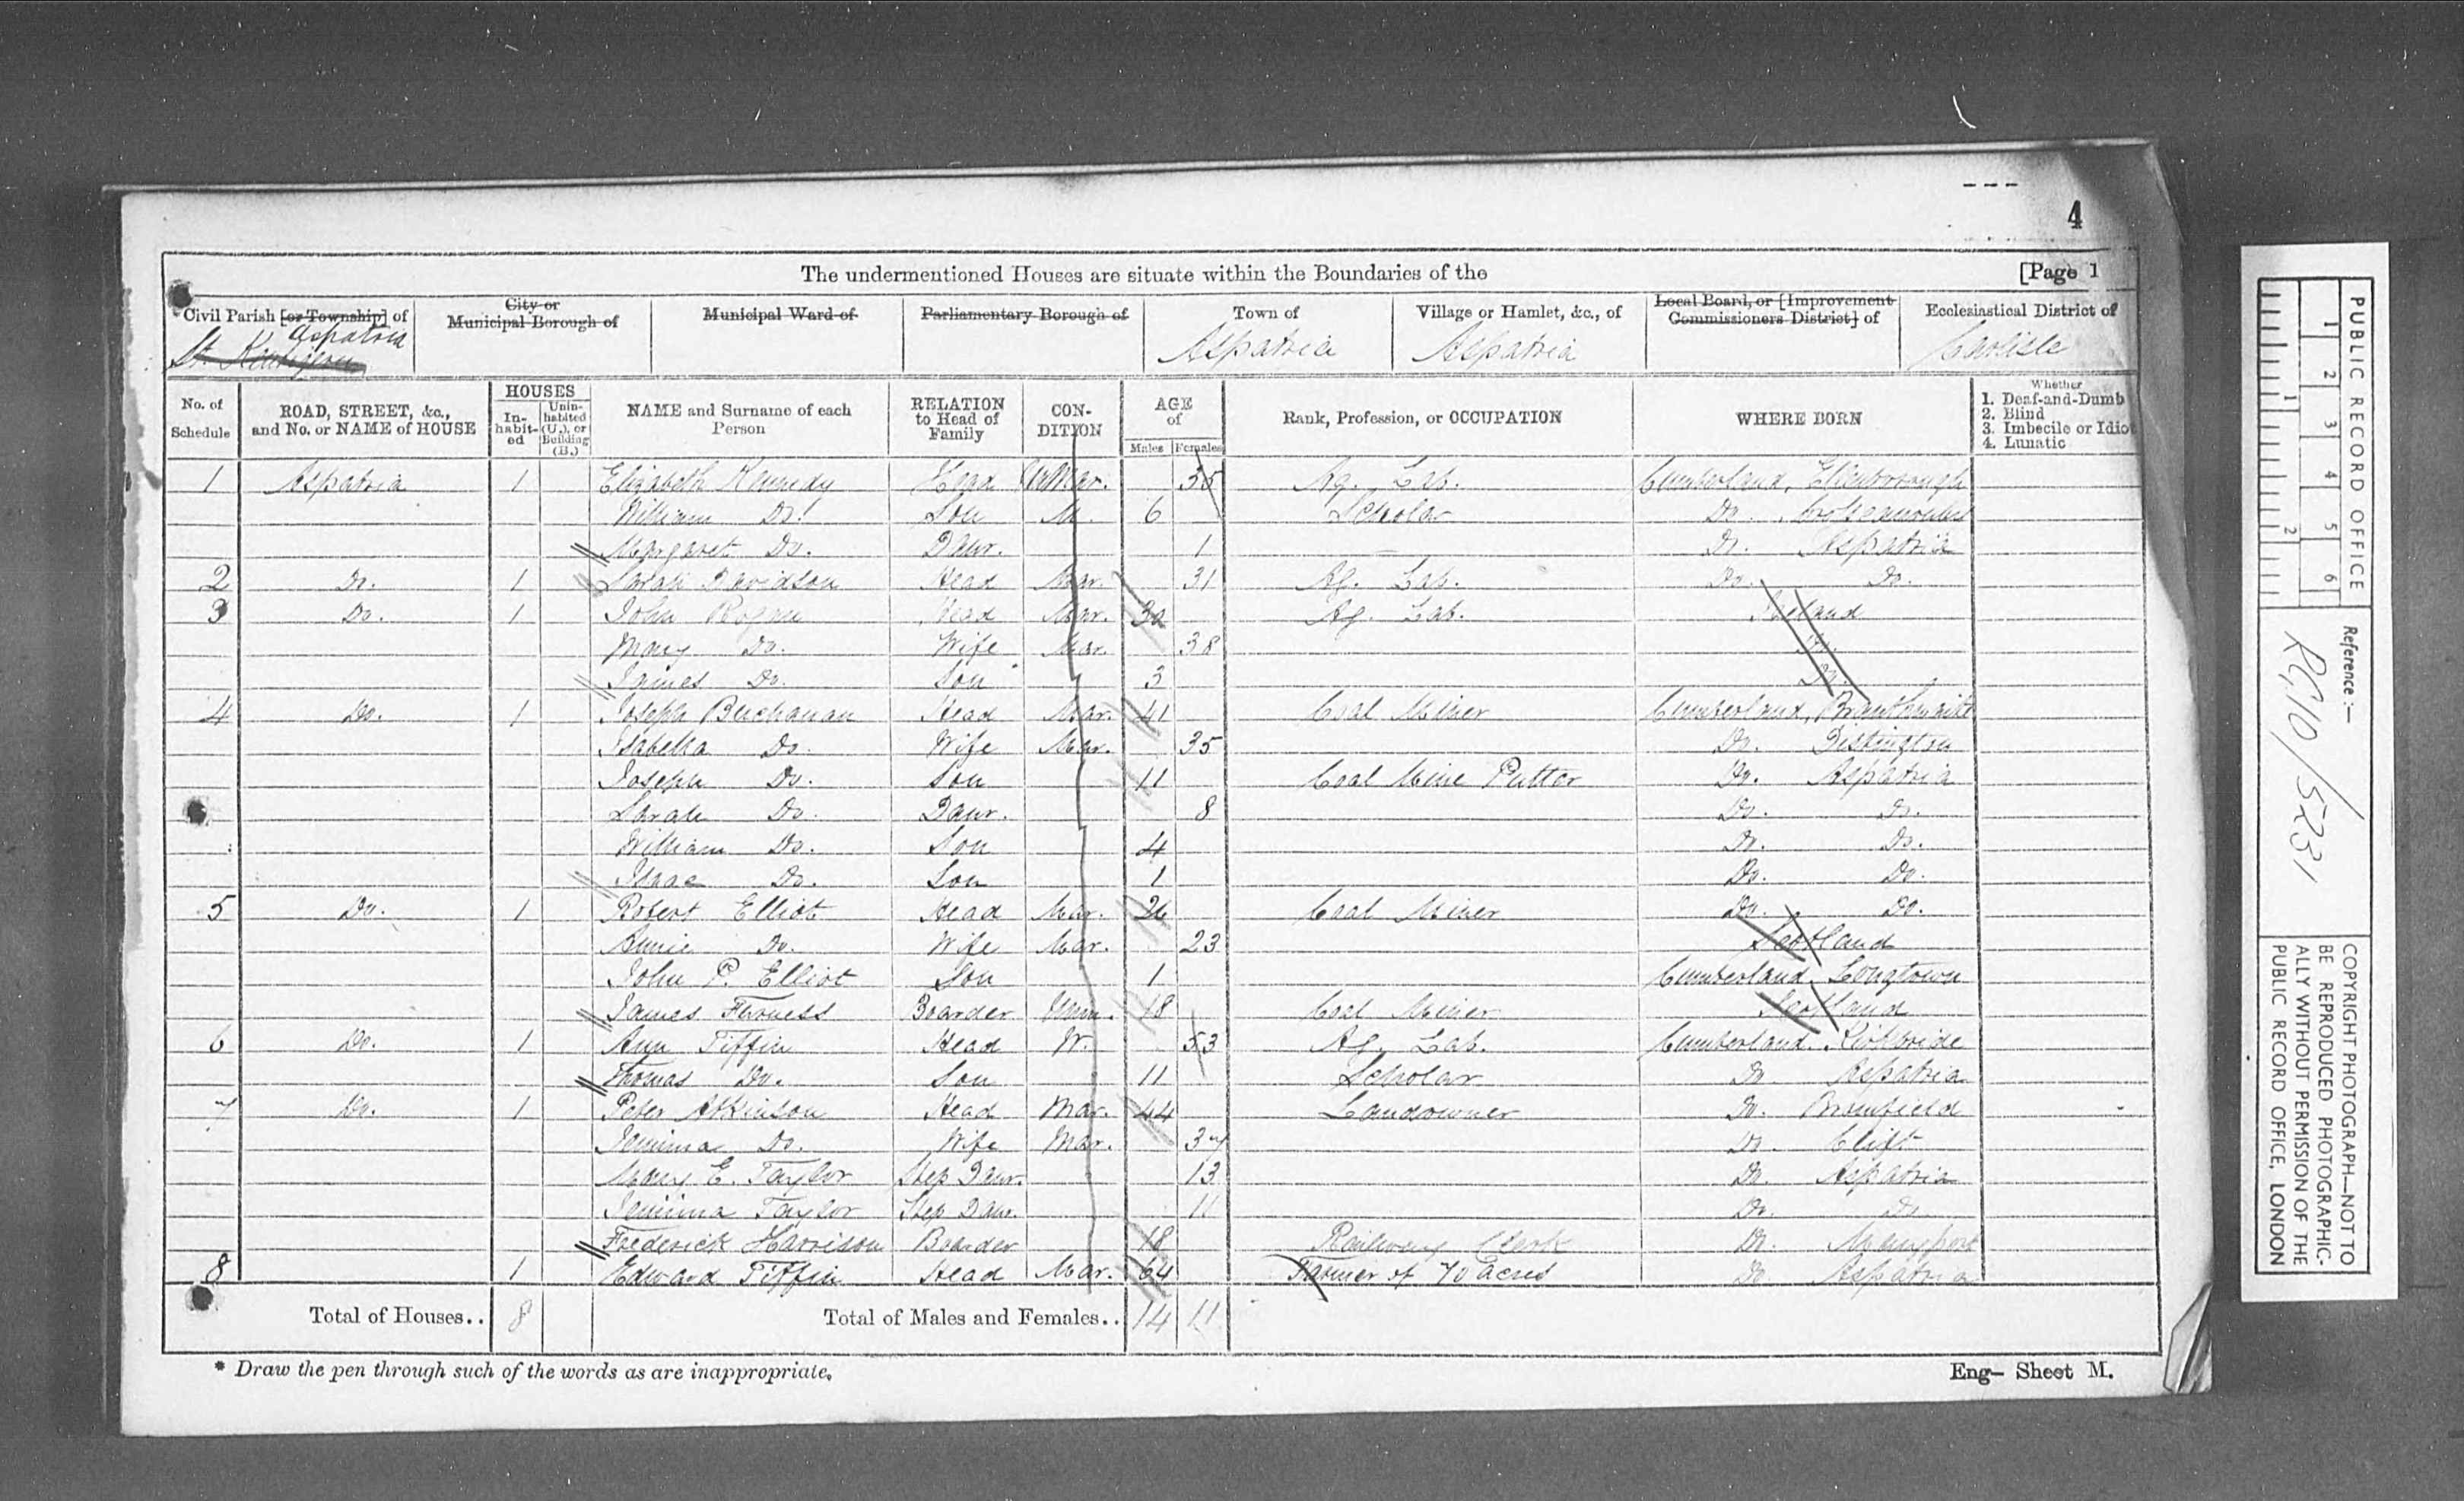 4
The undermentioned Houses are situate within the Boundaries of the [Page 1
Civil Parish [or Township] of City or Municipal Borough of Municipal Ward of Parliamentary Borough of Town of Village or Hamlet, &c., of Local Board, or [Improvement Commissioners District] of Ecclesiastical District of
Aspatria Aspatria Aspatria Carlisle
No. of Schedule ROAD, STREET, &c., and No. or NAME of HOUSE HOUSES In-habit-ed Unin-habited (U.), or Building (B.) NAME and Surname of each Person RELATION to Head of Family CON-DITION AGE of Males Females Rank, Profession, or OCCUPATION WHERE BORN Whether 1. Deaf-and-Dumb 2. Blind 3. Imbecile or Idiot 4. Lunatic
1 Aspatria 1 Elizabeth Kennedy Head 35 Ag. Lab. Cumberland, Ellenborough
William Do. Son 6 Scholar Do.
Margaret Do. Daur. 1 Do. Aspatria
2 Do. 1 Sarah Davidson Head Mar. 31 Ag. Lab. Do. Do.
3 Do. 1 John Head Mar. 30 Ag. Lab. Ireland
Mary Do. Wife Mar. 38 Do.
James Do. Son 3 Do.
4 Do. 1 Joseph Buchanan Head Mar. 41 Coal Miner Cumberland, Branthwaite
Isabella Do. Wife Mar. 35 Do. Distington
Joseph Do. Son 11 Coal Mine Putter Do. Aspatria
Sarah Do. Daur. 8 Do. Do.
William Do. Son 4 Do. Do.
Isaac Do. Son 1 Do. Do.
5 Do. 1 Robert Elliot Head Mar. 26 Coal Miner Do. Do.
Annie Do. Wife Mar. 23 Scotland
John P. Elliot Son 1 Cumberland, Longtown
James Boarder Unm. 18 Coal Miner Scotland
6 Do. 1 Ann Tiffin Head W. 53 Ag. Lab. Cumberland, Kirkbride
Thomas Do. Son 11 Scholar Do. Aspatria
7 Do. 1 Peter Atkinson Head Mar. 44 Landowner Do. Bromfield
Jemima Do. Wife Mar. 37 Do.
Mary E. Taylor Step Daur. 13 Do. Aspatria
Jemima Taylor Step Daur. 11 Do. Do.
Frederick Harrison Boarder 18 Railway Clerk Do. Maryport
8 1 Edward Tiffin Head Mar. 64 Farmer of 70 acres Do. Aspatria
Total of Houses.. 8 Total of Males and Females.. 14 11
* Draw the pen through such of the words as are inappropriate.
Eng- Sheet M.
PUBLIC RECORD OFFICE
1 2 3 4 5 6
1 2
Reference :-
RG10/5231
COPYRIGHT PHOTOGRAPH—NOT TO
BE REPRODUCED PHOTOGRAPHIC-
ALLY WITHOUT PERMISSION OF THE
PUBLIC RECORD OFFICE, LONDON